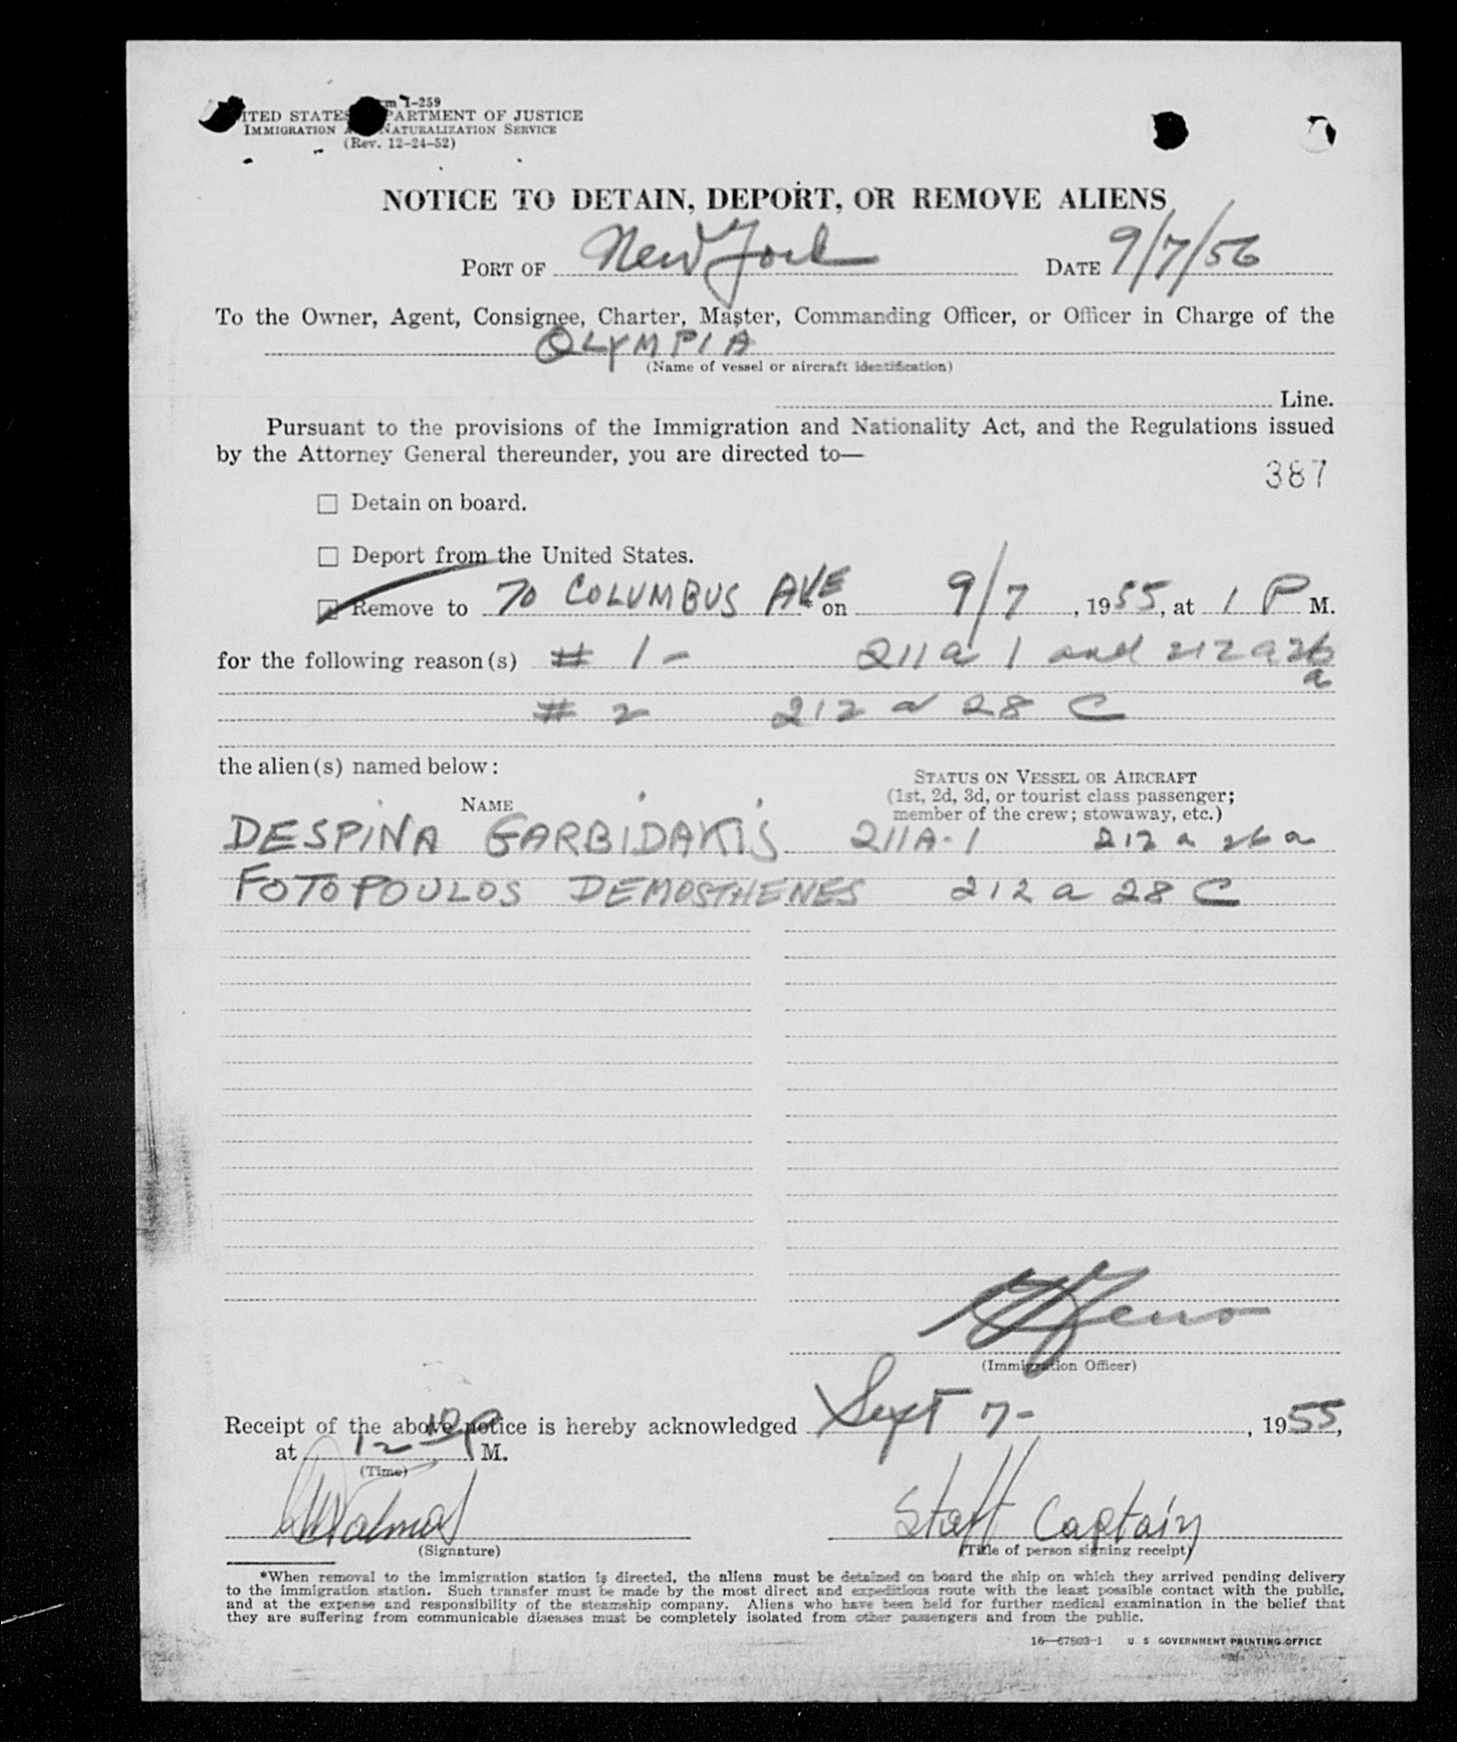 m I-259
ITED STATES PARTMENT OF JUSTICE
IMMIGRATION A NATURALIZATION SERVICE
(Rev. 12-24-52)
NOTICE TO DETAIN, DEPORT, OR REMOVE ALIENS
PORT OF New York DATE 9/7/56
To the Owner, Agent, Consignee, Charter, Master, Commanding Officer, or Officer in Charge of the
OLYMPIA
(Name of vessel or aircraft identification)
Line.
Pursuant to the provisions of the Immigration and Nationality Act, and the Regulations issued
by the Attorney General thereunder, you are directed to—
387
☐ Detain on board.
☐ Deport from the United States.
Remove to 70 COLUMBUS AVE on 9/7, 1955, at 1 P M.
for the following reason(s) # 1 - 211 a 1 and 212 a 26
a
# 2 212 a 28 C
the alien(s) named below:
STATUS ON VESSEL OR AIRCRAFT
NAME (1st, 2d, 3d, or tourist class passenger;
member of the crew; stowaway, etc.)
DESPINA GARBIDAKIS 211A-1 212 a 26 a
FOTOPOULOS DEMOSTHENES 212 a 28 C
(Immigration Officer)
Receipt of the above notice is hereby acknowledged Sept 7-, 1955,
at 12 10 P M.
(Time)
Staff Captain
(Signature) (Title of person signing receipt)
*When removal to the immigration station is directed, the aliens must be detained on board the ship on which they arrived pending delivery
to the immigration station. Such transfer must be made by the most direct and expeditious route with the least possible contact with the public,
and at the expense and responsibility of the steamship company. Aliens who have been held for further medical examination in the belief that
they are suffering from communicable diseases must be completely isolated from other passengers and from the public.
16—67803-1 U S GOVERNMENT PRINTING OFFICE